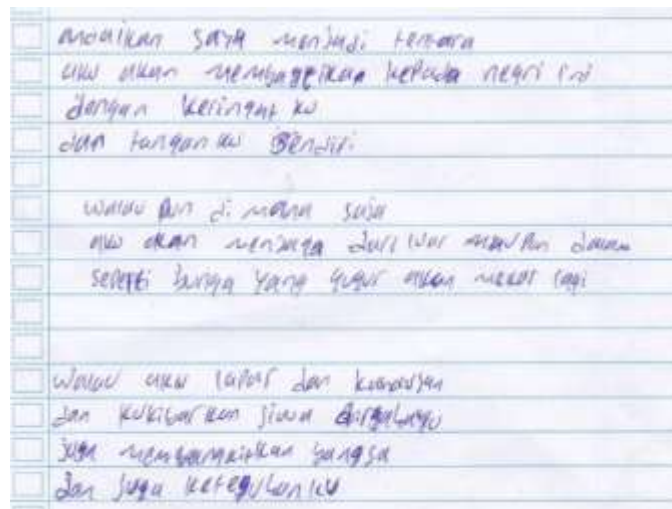 andaikan saya menjadi tentara
aku akan membaggikan kepada negri ini
dengan keringat ku
dan tangan ku sendiri
walau pun di mana saja
aku akan menjaga dari luar maupun dalam
seperti bunga yang gugur akan mekar lagi
walau aku lapar dan
dan kukibarkan jiwa dirgahayu
juga membangkitkan bangsa
dan juga keteguhanku